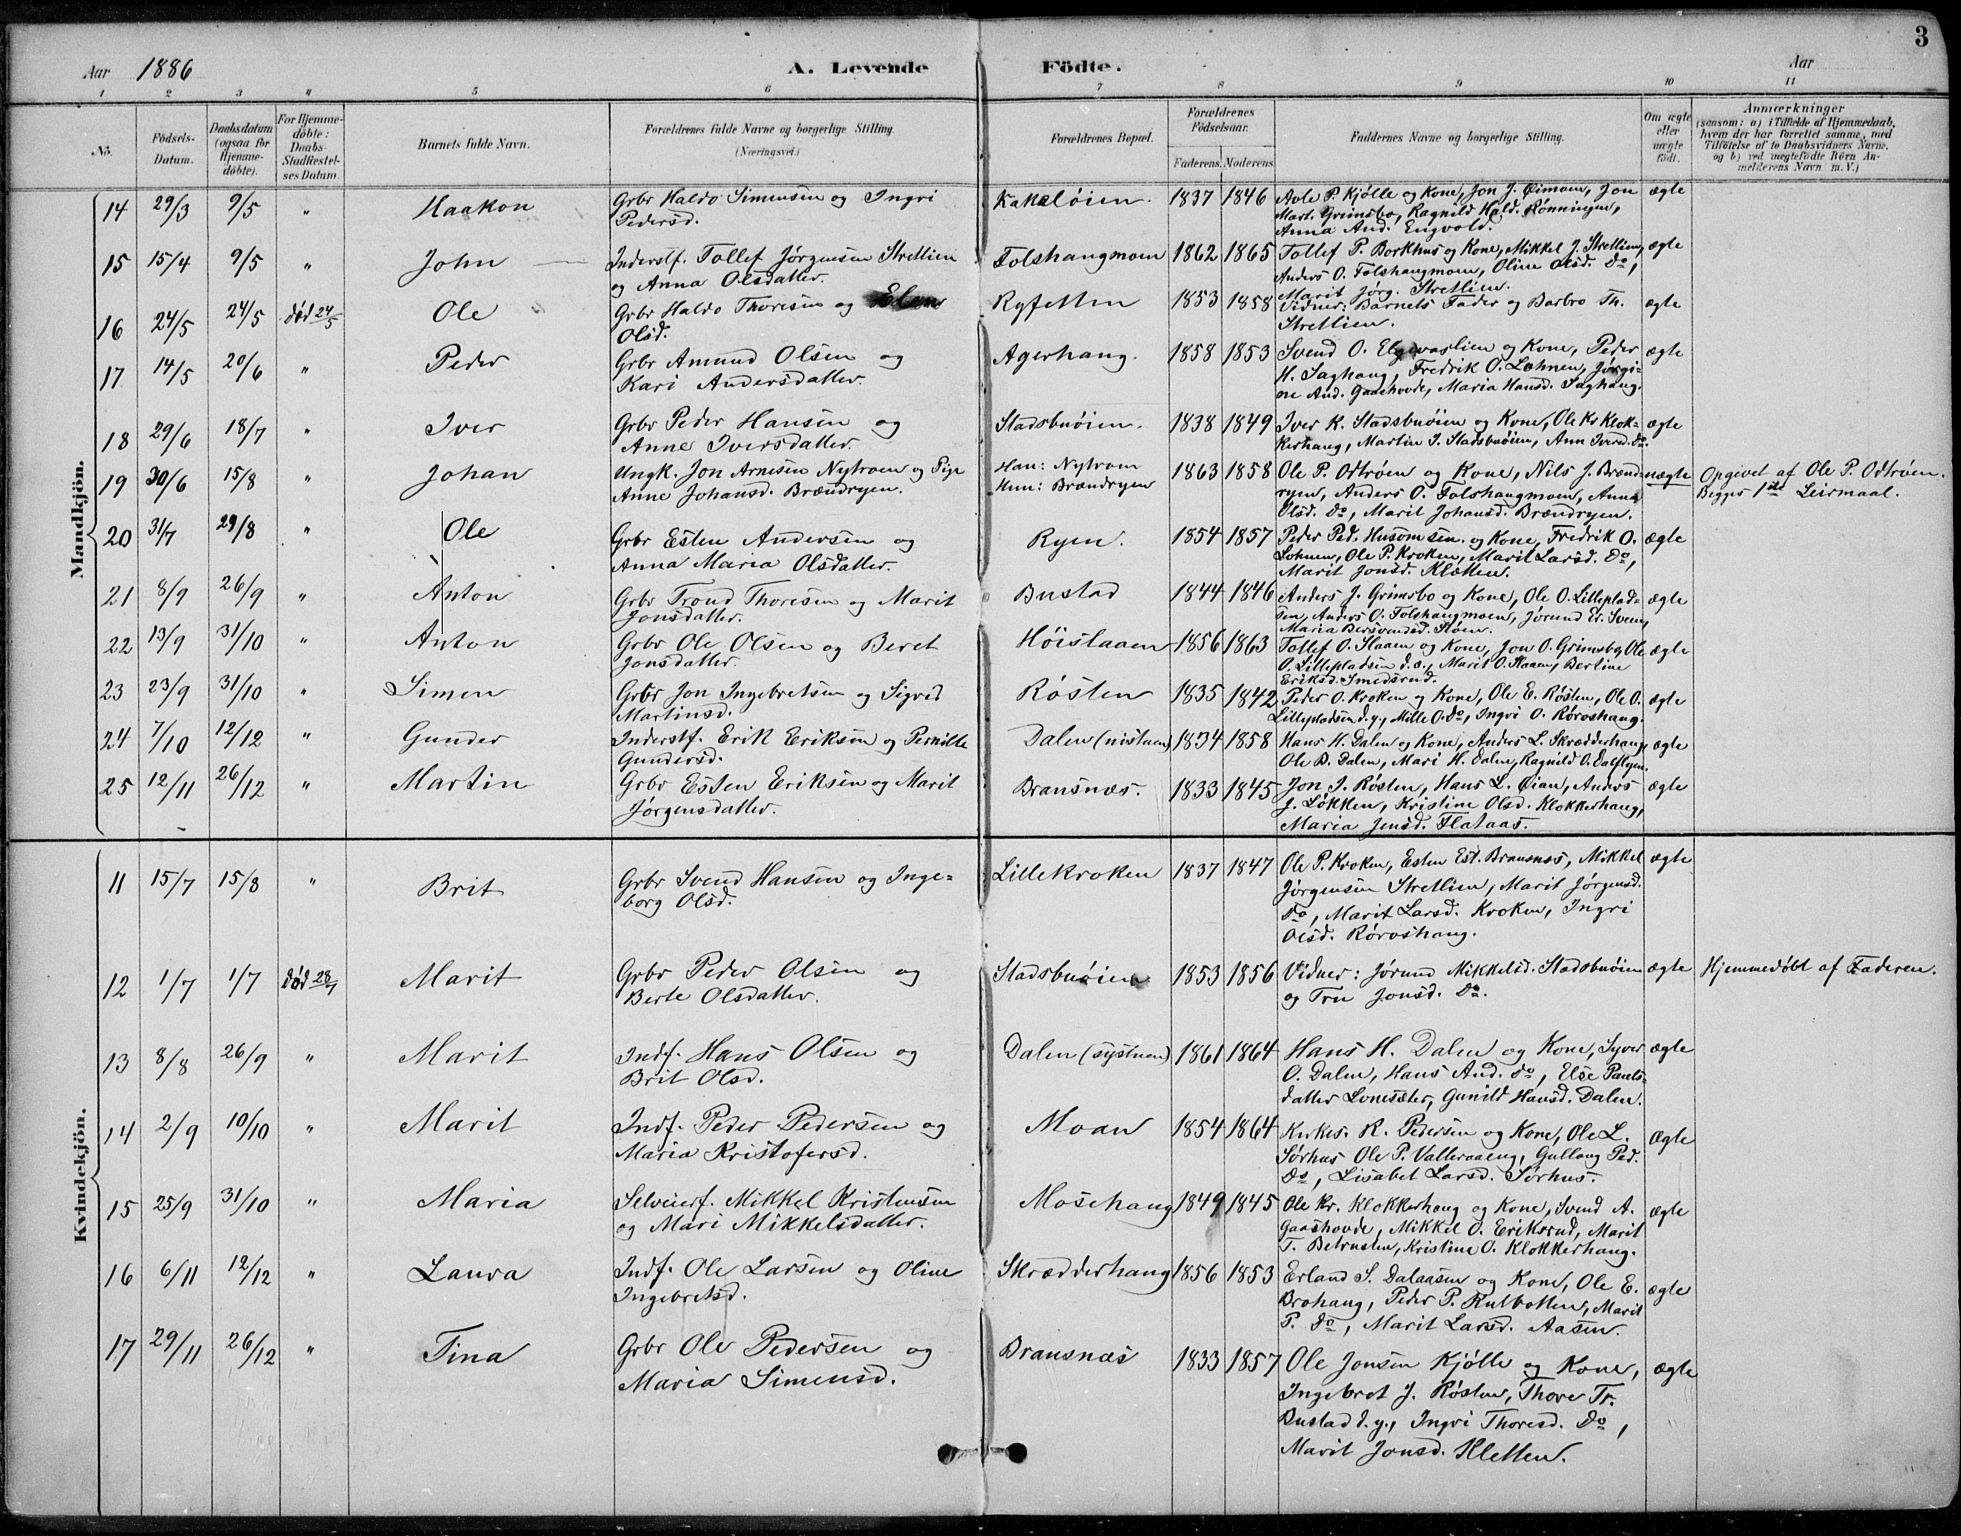 3
Aar 1886 A. Levende Födte. Aar
1 2 3 " 5 6 7 8 9 10 11
No. Födsels-Datum. Daabsdatum (ogsaa for Hjemmedöbte). For Hjemmedöbte: Daabs-Stadfæstelses Datum. Barnets fulde Navn. Forældrenes fulde Navne og borgerlige Stilling. (Næringsvei.) Forældrenes Bopæl. Forældrenes Födselsaar. Faderens. Moderens. Faddernes Navne og borgerlige Stilling. Om ægte eller uægte födt. Anmærkninger (saasom: a) i Tilfælde af Hjemmedaab, hvem der har forrettet samme, med Tilföielse af to Daabsvidners Navne, og b) ved uægtefödte Börn Anmelderens Navn m. V.)
Mandkjön.
14 29/3 9/5 " Haakon Grbr Haldo Simensen og Ingri Kakeløien. 1837 1846 Avle P. Kjølle og Kone, Jon J. Øimoen, Jon ægte
Pedersd. Mart. Grimsbo, Ragnild Hald. Rønningen,
Anna And. Engvold.
15 15/4 9/5 " John Inderstf. Tollef Jørgensen Stretlien Tolshaugmoen 1862 1865 Tollef P. Borkhus og Kone, Mikkel J. Stretlien, ægte
og Anna Olsdatter. Anders O. Tolshaugmoen, Oline Olsd. Do,
Marit Jørg. Stretlien.
16 24/5 24/5 død 24/5 Ole Grbr Haldo Thoresen og Elen Ryfetten 1853 1858 Vidner: Barnets Fader og Barbro Th. ægte
Olsd. Stretlien.
17 14/5 20/6 " Peder Grbr Amund Olsen og Agerhaug. 1858 1853 Svend O. Elgevaslien og Kone, Peder ægte
Kari Andersdatter. H. Saghaug, Fredrik O. Lohnen, Jørgi-
ne And. Gaashovde, Maria Hansd. Saghaug.
18 29/6 18/7 " Iver Grbr Peder Hansen og Stadsbuøien. 1838 1849 Iver K. Stadsbuøien og Kone, Ole Kr. Klok- ægte
Anne Iversdatter. kerhaug, Martin I. Stadsbuøien, Ann Iversd. Do.
19 30/6 15/8 " Johan Ungk. Jon Arnesen Nytroen og Pige Han: Nytroen 1863 1858 Ole P. Odtrøen og Kone, Nils J. Brænd- uægte Opgivet af Ole P. Odtrøen.
Anne Johansd. Brændryen. Hun: Brændryen ryen, Anders O. Tolshaugmoen, Anna Begges 1ste Leirmaal.
Olsd. Do, Marit Johansd. Brændryen.
20 31/7 29/8 " Ole Grbr Esten Andersen og Ryen. 1854 1857 Peder Ped. Husomsen og Kone, Fredrik O. ægte
Anna Maria Olsdatter. Lohnen, Ole P. Kroken, Marit Larsd. Do,
Marit Jonsd. Kletten.
21 8/9 26/9 " Anton Grbr Trond Thoresen og Marit Bustad 1844 1846 Anders J. Grimsbo og Kone, Ole O. Lilleplad- ægte
Jonsdatter. sen, Anders O. Tolshaugmoen, Jørund El. Sveen,
Maria Bersvendsd. Støen.
22 13/9 31/10 " Anton Grbr Ole Olsen og Beret Høistaaen 1856 1863 Tollef O. Staaen og Kone, Jon O. Grimsbo, Ole ægte
Jonsdatter. O. Lillepladsen d. æ., Marit O. Staaen, Bertine
Eriksd. Smedsrud.
23 23/9 31/10 " Simen Grbr Jon Ingebretsen og Sigrid Røsten 1835 1842 Peder O. Kroken og Kone, Ole E. Røsten, Ole O. ægte
Martinsd. Lillepladsen d. y., Mille O. Do, Ingri O. Røroshaug.
24 7/10 12/12 " Gunder Inderstf. Erik Eriksen og Pernille Dalen (nistuen) 1834 1858 Hans H. Dalen og Kone, Anders L. Skrædderhaug, ægte
Gundersd. Ole B. Dalen, Mari H. Dalen, Ragnild O. Dalflyen.
25 12/11 26/12 " Martin Grbr Esten Eriksen og Marit Bransnæs. 1833 1845 Jon J. Røsten, Hans L. Øian, Anders ægte
Jørgensdatter. J. Løkken, Kristine Olsd. Klokkerhaug,
Maria Jensd. Flataas.
Kvindekjön.
11 15/7 15/8 " Brit Grbr Svend Hansen og Inge- Lillekroken 1837 1847 Ole P. Kroken, Esten Est. Bransnes, Mikkel ægte
borg Olsd. Jørgensen Stretlien, Marit Jørgensd.
Do, Marit Larsd. Kroken, Ingri
Olsd. Røroshaug.
12 1/7 1/7 død 28/7 Marit Grbr Peder Olsen og Stadsbuøien 1853 1856 Vidner: Jørund Mikkelsd. Stadsbuøien ægte Hjemmedøbt af Faderen.
Berte Olsdatter. og Tru Jonsd. Do.
13 8/8 26/9 " Marit Indf. Hans Olsen og Dalen (systuen) 1861 1864 Hans H. Dalen og Kone, Syver ægte
Brit Olsd. O. Dalen, Hans And. Do, Else Pauls-
datter Lonesæter, Gunild Hansd. Dalen.
14 2/9 10/10 " Marit Indf. Peder Pedersen og Moan 1854 1864 Kirkes. R. Pedersen og Kone, Ole L. Ægte
Maria Kristofersd. Sørhus Ole P. Valleraaeng, Gullaug Ped.
Do, Lisabet Larsd. Sørhus.
15 25/9 31/10 " Maria Selveierf. Mikkel Kristensen Mosehaug 1849 1845 Ole Kr. Klokkerhaug og Kone, Svend A. ægte
og Mari Mikkelsdatter. Gaashovde, Mikkel O. Eriksrud, Marit
T. Betensten, Kristine O. Klokkerhaug.
16 6/11 12/12 " Laura Indf. Ole Larsen og Oline Skrædderhaug 1856 1853 Erland S. Dalaasen og Kone, Ole E. ægte
Ingebretsd. Brohaug, Peder P. Rulbotten, Marit
P. Do, Marit Larsd. Aasen.
17 29/11 26/12 " Tina Grbr Ole Pedersen og Bransnæs 1833 1857 Ole Jonsen Kjølle og Kone, ægte
Maria Simensd. Ingebret J. Røsten, Thore Tr.
Bustad d. y., Ingri Thoresd. Do,
Marit Jonsd. Kletten.